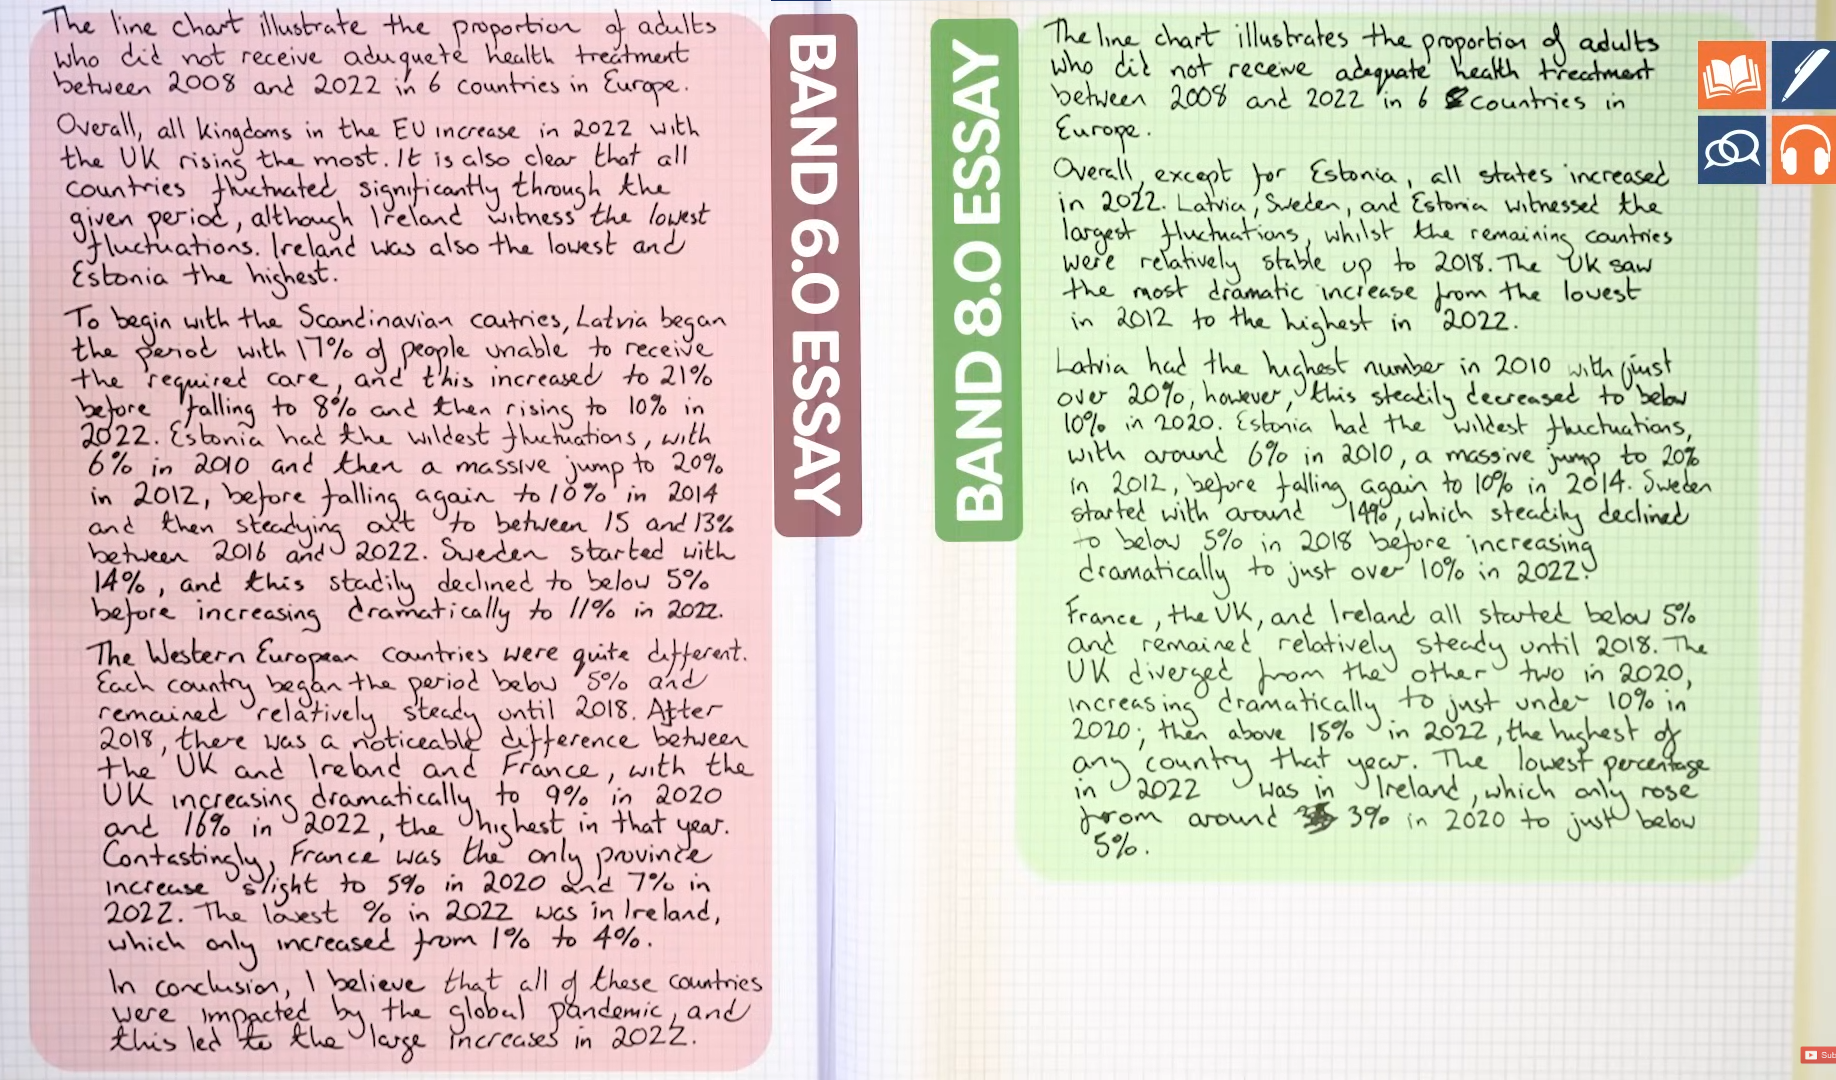 The line chart illustrate the proportion of adults
who did not receive aduquete health treatment
between 2008 and 2022 in 6 countries in Europe.
Overall, all kingdoms in the EU increase in 2022 with
the UK rising the most. It is also clear that all
countries fluctuated significantly through the
given period, although Ireland witness the lowest
fluctuations. Ireland was also the lowest and
Estonia the highest.
To begin with the Scandinavian coutries, Latvia began
the period with 17% of people unable to receive
the required care, and this increased to 21%
before falling to 8% and then rising to 10% in
2022. Estonia had the wildest fluctuations, with
6% in 2010 and then a massive jump to 20%
in 2012, before falling again to 10% in 2014
and then steadying out to between 15 and 13%
between 2016 and 2022. Sweden started with
14%, and this stadily declined to below 5%
before increasing dramatically to 11% in 2022.
The Western European countries were quite different.
Each country began the period below 5% and
remained relatively steady until 2018. After
2018, there was a noticeable difference between
the UK and Ireland and France, with the
UK increasing dramatically to 9% in 2020
and 16% in 2022, the highest in that year.
Contastingly, France was the only province
increase slight to 5% in 2020 and 7% in
2022. The lowest % in 2022 was in Ireland,
which only increased from 1% to 4%.
In conclusion, I believe that all of these countries
were impacted by the global pandemic, and
this led to the large increases in 2022.
BAND 6.0 ESSAY
BAND 8.0 ESSAY
The line chart illustrates the proportion of adults
who did not receive adequate health treatment
between 2008 and 2022 in 6 countries in
Europe.
Overall, except for Estonia, all states increased
in 2022. Latvia, Sweden, and Estonia witnessed the
largest fluctuations, whilst the remaining countries
were relatively stable up to 2018. The UK saw
the most dramatic increase from the lowest
in 2012 to the highest in 2022.
Latvia had the highest number in 2010 with just
over 20%, however, this steadily decreased to below
10% in 2020. Estonia had the wildest fluctuations,
with around 6% in 2010, a massive jump to 20%
in 2012, before falling again to 10% in 2014. Sweden
started with around 14%, which steadily declined
to below 5% in 2018 before increasing
dramatically to just over 10% in 2022.
France, the UK, and Ireland all started below 5%
and remained relatively steady until 2018. The
UK diverged from the other two in 2020,
increasing dramatically to just under 10% in
2020; then above 15% in 2022, the highest of
any country that year. The lowest percentage
in 2022 was in Ireland, which only rose
from around 3% in 2020 to just below
5%.
Sub